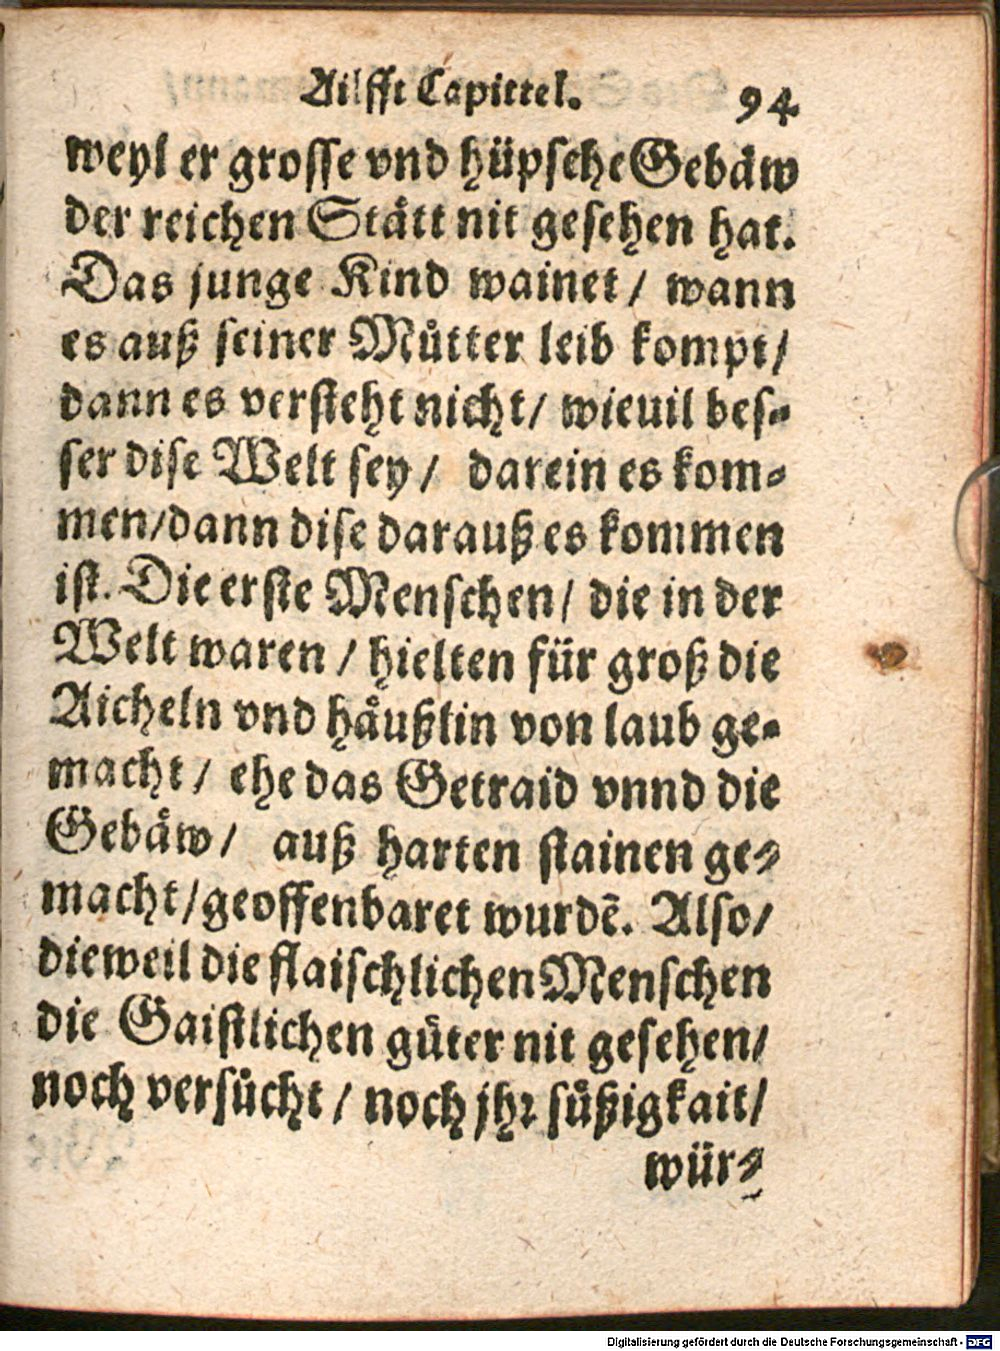 Ailfft Capittel. 94
weyl er grosse vnd hüpsche Gebäw
der reichen Stätt nit gesehen hat.
Das junge Kind wainet / wann
es auß seiner Mütter leib kompt /
dann es versteht nicht / wieuil bes-
ser dise Welt sey / darein es kom-
men / dann dise darauß es kommen
ist. Die erste Menschen / die in der
Welt waren / hielten für groß die
Aicheln vnd häußlin von laub ge-
macht / ehe das Getraid vnnd die
Gebäw / auß harten stainen ge-
macht / geoffenbaret wurdẽ. Also /
dieweil die flaischlichen Menschen
die Gaistlichen güter nit gesehen /
noch versücht / noch jhr süßigkait /
wür-
Digitalisierung gefördert durch die Deutsche Forschungsgemeinschaft - DFG